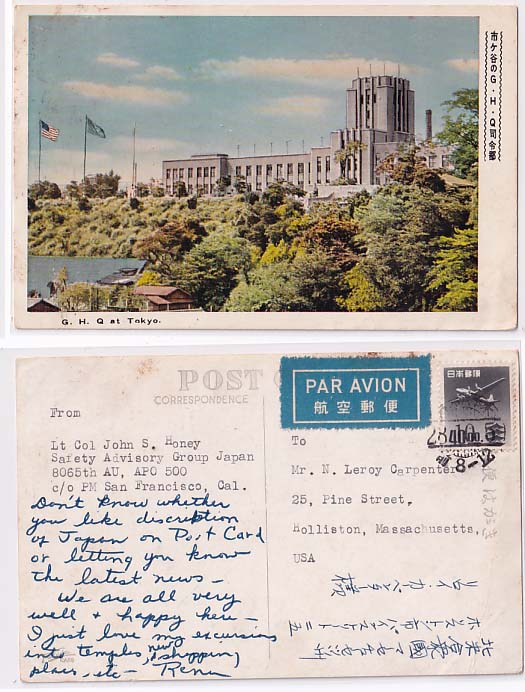 市ヶ谷のG・H・Q司令部
G. H. Q at Tokyo.
POST
CORRESPONDENCE
PAR AVION
航空郵便
日本郵便
From
Lt Col John S. Honey
Safety Advisory Group Japan
8065th AU, APO 500
c/o PM San Francisco, Cal.
Don't know whether
you like discription
of Japan on Post Card
or letting you know
the latest news -
We are all very
well + happy here -
I just love my excursions
into temples, new
shopping
places, etc -
To
Mr. N. Leroy Carpenter
25, Pine Street,
Holliston, Massachusetts,
USA